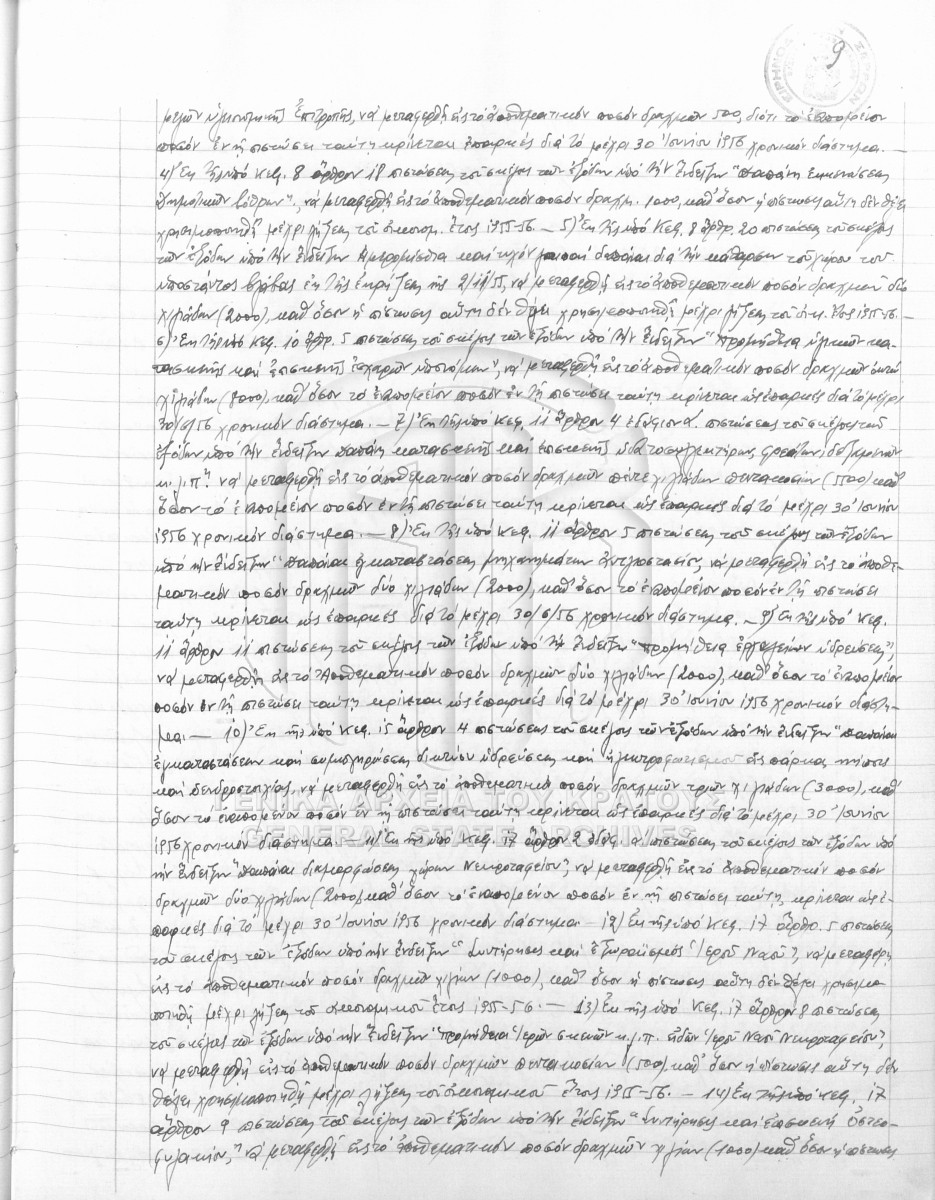 9
μελῶν ὑγειονομικῆς Ἐπιτροπῆς, νά μεταφερθῇ εἰς τό ἀποθεματικόν ποσόν δραχμῶν 500, διότι τό ἐναπομεῖνον
ποσόν ἐν τῇ πιστώσει ταύτῃ κρίνεται ἐπαρκές διά τό μέχρι 30 Ἰουνίου 1956 χρονικόν διάστημα. —
4) Ἐκ τῆς ὑπό Κεφ. 8 ἄρθρον 18 πιστώσεως τοῦ σκέλους τῶν ἐξόδων ὑπό τήν ἔνδειξιν "Δαπάνη ἐκκενώσεως
δημοτικῶν βόθρων", νά μεταφερθῇ εἰς τό ἀποθεματικόν ποσόν δραχμ. 1000, καθ' ὅσον ἡ πίστωσις αὕτη δέν θέλει
χρησιμοποιηθῇ μέχρι λήξεως τοῦ οἰκονομ. ἔτους 1955-56. — 5) Ἐκ τῆς ὑπό Κεφ. 8 ἄρθρ. 20 πιστώσεως τοῦ σκέλους
τῶν ἐξόδων ὑπό τήν ἔνδειξιν Ἡμερομίσθια καί τυχόν δαπάναι διά τήν κάθαρσιν τοῦ χώρου τοῦ
ὑποστάντος βλάβας ἐκ τῆς ἐκρήξεως τῆς 2/11/55, νά μεταφερθῇ εἰς τό ἀποθεματικόν ποσόν δραχμῶν δύο
χιλιάδων (2000), καθ' ὅσον ἡ πίστωσις αὕτη δέν θέλει χρησιμοποιηθῇ μέχρι λήξεως τοῦ οἰκ. ἔτους 1955-56. —
6) Ἐκ τῆς ὑπό Κεφ. 10 ἄρθρ. 5 πιστώσεως τοῦ σκέλους τῶν ἐξόδων ὑπό τήν ἔνδειξιν "Προμήθεια ὑλικῶν κα-
τασκευῆς καί ἐπισκευῆς ἐσχαρῶν ὑπονόμων", νά μεταφερθῇ εἰς τό ἀποθεματικόν ποσόν δραχμῶν ὀκτώ
χιλιάδων (8000), καθ' ὅσον τό ἐναπομεῖνον ποσόν ἐν τῇ πιστώσει ταύτῃ κρίνεται ὡς ἐπαρκές διά τό μέχρι
30/6/56 χρονικόν διάστημα. — 7) Ἐκ τῆς ὑπό Κεφ. 11 ἄρθρον 4 ἐδάφιον α. πιστώσεως τοῦ σκέλους τῶν
ἐξόδων ὑπό τήν ἔνδειξιν Δαπάνη κατασκευῆς καί ἐπισκευῆς φρεάτων, δεξαμενῶν
κ.λ.π." νά μεταφερθῇ εἰς τό ἀποθεματικόν ποσόν δραχμῶν πέντε χιλιάδων πεντακοσίων (5500) καθ'
ὅσον τό ἐναπομεῖνον ποσόν ἐν τῇ πιστώσει ταύτῃ κρίνεται ὡς ἐπαρκές διά τό μέχρι 30 Ἰουνίου
1956 χρονικόν διάστημα. — 8) Ἐκ τῆς ὑπό Κεφ. 11 ἄρθρον 5 πιστώσεως τοῦ σκέλους τῶν ἐξόδων
ὑπό τήν ἔνδειξιν "Δαπάναι ἐγκαταστάσεως μηχανημάτων ἀντλιοστασίου, νά μεταφερθῇ εἰς τό ἀποθε-
ματικόν ποσόν δραχμῶν δύο χιλιάδων (2000), καθ' ὅσον τό ἐναπομεῖνον ποσόν ἐν τῇ πιστώσει
ταύτῃ κρίνεται ὡς ἐπαρκές διά τό μέχρι 30/6/56 χρονικόν διάστημα. — 9) Ἐκ τῆς ὑπό Κεφ.
11 ἄρθρον 11 πιστώσεως τοῦ σκέλους τῶν ἐξόδων ὑπό τήν ἔνδειξιν "προμήθεια ἐργαλείων ὑδρεύσεως",
νά μεταφερθῇ εἰς τό Ἀποθεματικόν ποσόν δραχμῶν δύο χιλιάδων (2000), καθ' ὅσον τό ἐναπομεῖνον
ποσόν ἐν τῇ πιστώσει ταύτῃ κρίνεται ὡς ἐπαρκές διά τό μέχρι 30 Ἰουνίου 1956 χρονικόν διάστη-
μα. — 10) Ἐκ τῆς ὑπό Κεφ. 15 ἄρθρον 4 πιστώσεως τοῦ σκέλους τῶν ἐξόδων ὑπό τήν ἔνδειξιν "Δαπάναι
ἐγκαταστάσεων καί συμπληρώσεως δικτύου ὑδρεύσεως καί ἠλεκτροφωτισμοῦ εἰς πάρκα, κήπους
καί δενδροστοιχίας, νά μεταφερθῇ εἰς τό ἀποθεματικόν ποσόν δραχμῶν τριῶν χιλιάδων (3000), καθ'
ὅσον τό ἐναπομεῖνον ποσόν ἐν τῇ πιστώσει ταύτῃ κρίνεται ὡς ἐπαρκές διά τό μέχρι 30 Ἰουνίου
1956 χρονικόν διάστημα. — 11) Ἐκ τῆς ὑπό Κεφ. 17 ἄρθρον 2 ἐδάφ. α πιστώσεως τοῦ σκέλους τῶν ἐξόδων ὑπό
τήν ἔνδειξιν "Δαπάναι διαμορφώσεως χώρου Νεκροταφείου", νά μεταφερθῇ εἰς τό ἀποθεματικόν ποσόν
δραχμῶν δύο χιλιάδων (2000) καθ' ὅσον τό ἐναπομεῖνον ποσόν ἐν τῇ πιστώσει ταύτῃ κρίνεται ὡς ἐ-
παρκές διά τό μέχρι 30 Ἰουνίου 1956 χρονικόν διάστημα — 12) Ἐκ τῆς ὑπό Κεφ. 17 ἄρθρ. 5 πιστώσεως
τοῦ σκέλους τῶν ἐξόδων ὑπό τήν ἔνδειξιν "Συντήρησις καί ἐξωραϊσμός Ἱεροῦ Ναοῦ", νά μεταφερθῇ
εἰς τό ἀποθεματικόν ποσόν δραχμῶν χιλίων (1000), καθ' ὅσον ἡ πίστωσις αὕτη δέν θέλει χρησιμο-
ποιηθῇ μέχρι λήξεως τοῦ οἰκονομικοῦ ἔτους 1955-56. — 13) Ἐκ τῆς ὑπό Κεφ. 17 ἄρθρον 8 πιστώσεως
τοῦ σκέλους τῶν ἐξόδων ὑπό τήν ἔνδειξιν "προμήθεια Ἱερῶν σκευῶν κ.λ.π. εἰδῶν Ἱεροῦ Ναοῦ Νεκροταφείου",
νά μεταφερθῇ εἰς τό ἀποθεματικόν ποσόν δραχμῶν πεντακοσίων (500) καθ' ὅσον ἡ πίστωσις αὕτη δέν
θέλει χρησιμοποιηθῇ μέχρι λήξεως τοῦ οἰκονομικοῦ ἔτους 1955-56. — 14) Ἐκ τῆς ὑπό Κεφ. 17
ἄρθρον 9 πιστώσεως τοῦ σκέλους τῶν ἐξόδων ὑπό τήν ἔνδειξιν "Συντήρησις καί ἐπισκευή Ὀστεο-
φυλακίου," νά μεταφερθῇ εἰς τό ἀποθεματικόν ποσόν δραχμῶν χιλίων (1000) καθ' ὅσον ἡ πίστωσις
ΓΕΝΙΚΑ ΑΡΧΕΙΑ ΤΟΥ ΚΡΑΤΟΥΣ
GENERAL STATE ARCHIVES